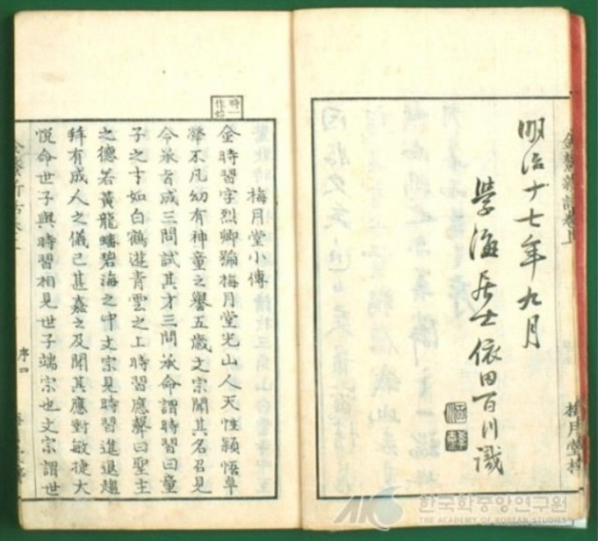 金鰲新話卷上
明治十七年九月
學海居士依田百川識
梅月堂小傳
時一作始
金時習字烈卿號梅月堂光山人天性穎悟卓
犖不凡幼有神童之譽五歲文宗聞其名召見
令承旨成三問試其才三問承命謂時習曰童
子之才如白鶴遊青雲之上時習應聲曰聖主
之德若黃龍蟠碧海之中文宗見時習進退趨
拜有成人之儀已甚嘉之及聞其應對敏捷大
悅命世子與時習相見世子端宗也文宗謂世
序四
한국학중앙연구원
THE ACADEMY OF KOREAN STUDIES